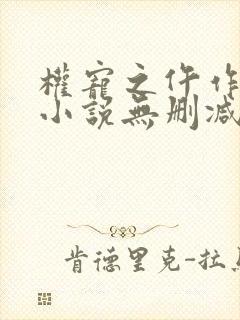 權寵之仵作
小說無刪減
肯德里克-拉